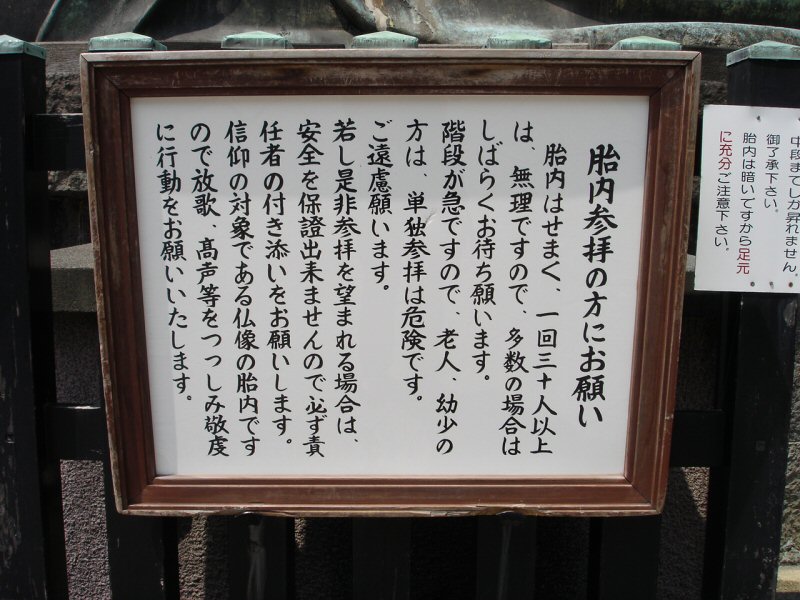 胎内参拝の方にお願い
胎内はせまく、一回三十人以上
は、無理ですので、多数の場合は
しばらくお待ち願います。
階段が急ですので、老人、幼少の
方は、単独参拝は危険です。
ご遠慮願います。
若し是非参拝を望まれる場合は、
安全を保證出来ませんので必ず責
任者の付き添いをお願いします。
信仰の対象である仏像の胎内です
ので放歌、高声等をつつしみ敬虔
に行動をお願いいたします。
中段までしか昇れません。
御了承下さい。
胎内は暗いですから足元
に充分ご注意下さい。